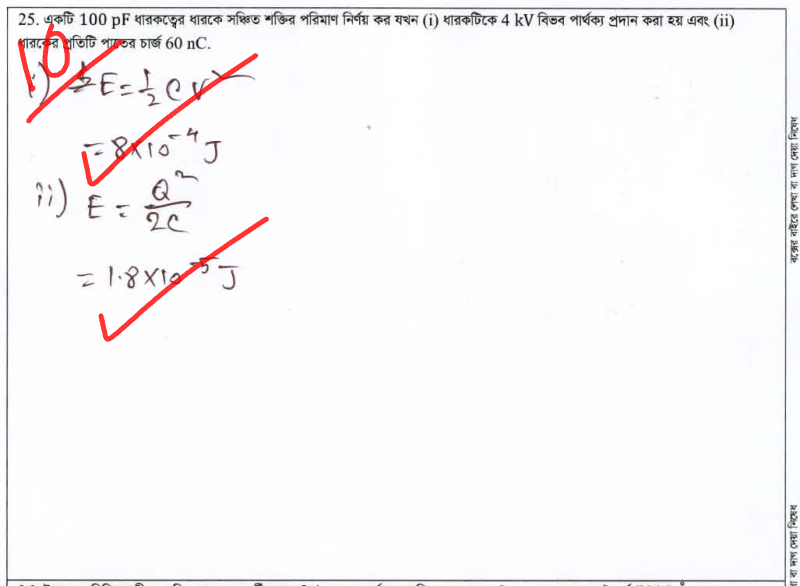 25. একটি 100 pF ধারকত্বের ধারকে সঞ্চিত শক্তির পরিমাণ নির্ণয় কর যখন (i) ধারকটিকে 4 kV বিভব পার্থক্য প্রদান করা হয় এবং (ii)
ধারকের প্রতিটি পাতের চার্জ 60 nC.
10
i) E = 1/2 CV²
= 8×10⁻⁴ J
ii) E = Q²/2C
= 1.8×10⁻⁵ J
বক্সের বাইরে লেখা বা দাগ দেয়া নিষেধ
বা দাগ দেয়া নিষেধ